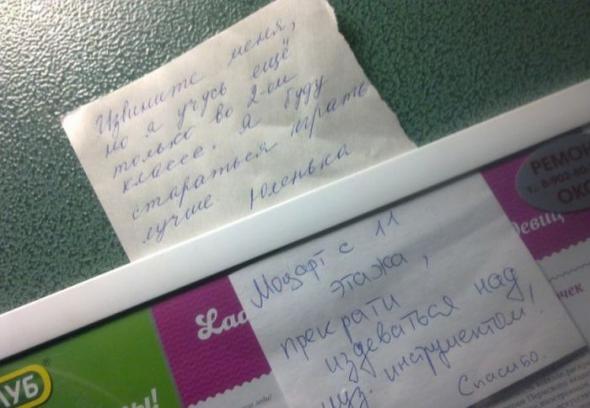 Извините меня,
но я учусь ещё
только во 2-ом
классе. Я буду
стараться играть
лучше Юленька
Моцарт с 11
этажа,
прекрати
издеваться над
муз. инструментом.
Спасибо.
РЕМОН
т. 8-902-80
ОК
Девищ
чек
Lad
УБ
ы!